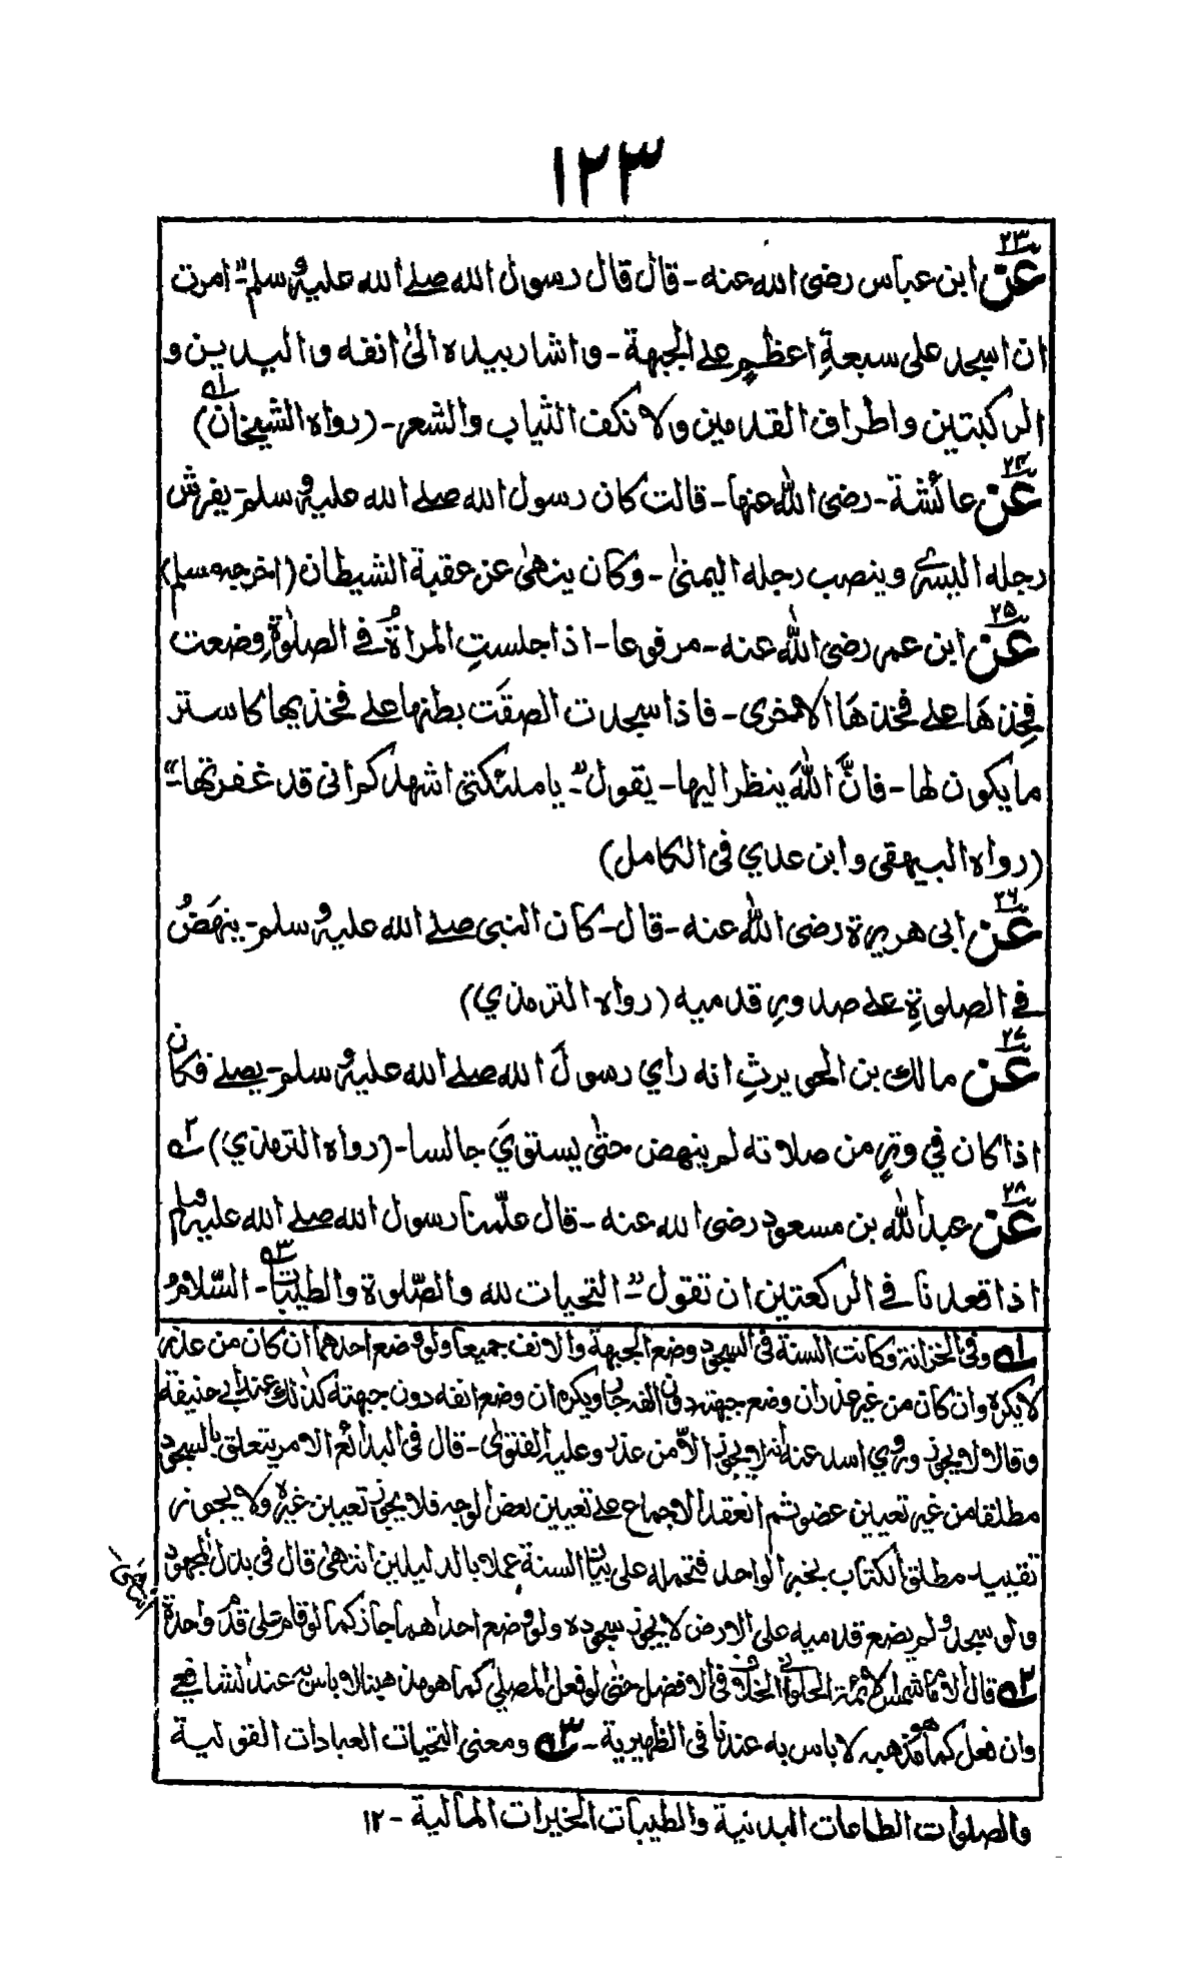 ١٢٣
٢٣
عن ابن عباس رضی الله عنه ـ قال قال رسول الله صلے الله علیه وسلم ـ "امرت
ان اسجد علی سبعةِ اعظُمٍ علے الجبهة ـ واشار بیده الیٰ انفه والیدین و
الرکبتین واطراف القدمین ولا نکف الثیاب والشعر ـ (رواه الشیخان) ؎١
٢٤
عن عائشة ـ رضی الله عنها ـ قالت کان رسول الله صلے الله علیه وسلم ـ یفرش
رجله الیسریٰ وینصب رجله الیمنیٰ ـ وکان ینهیٰ عن عقبة الشیطان (اخرجه مسلم)
٢٥
عن ابن عمر رضی الله عنه ـ مرفوعا ـ اذا جلستِ المراةُ فے الصلوٰةِ وضعت
فخِذهَا علے فخذهَا الاخریٰ ـ فاذا سجدت الصقَت بطنها علے فخذیها کاستر
ما یکون لها ـ فانَّ اللهَ ینظر الیها ـ یقول "ـ یا ملئکتی اشهدکم انی قد غفرتها ـ"
(رواه البیهقی وابن عدي فی الکامل)
٢٦
عن ابی هریرة رضی الله عنه ـ قال ـ کان النبی صلے الله علیه وسلم ـ ینهَضُ
فے الصلوةِ علے صدورِ قدمیه (رواه الترمذي)
٢٧
عن مالك بن الحویرثِ انه رأي رسولَ الله صلے الله علیه وسلم ـ یصلے فکان
اذا کان في وترٍ من صلاته لم ینهض حتیٰ یستويَ جالسا ـ (رواه الترمذي) ؎٢
٢٨
عن عبد الله بن مسعودٍ رضی الله عنه ـ قال علّمنا رسول الله صلے الله علیه وسلم
اذا قعدنا فے الرکعتین ان نقول "ـ التحیات لله والصّلوة والطیبات ؎٣ ـ السّلامُ
؎١ وفی الخزانة وکانت السنة فی السجود وضع الجبهة والانف جمیعا ولو وضع احدهما ان کان من عذر
لا یکره وان کان من غیر عذر ان وضع جبهته دون انفه جاز ویکره ان وضع انفه دون جبهته کذلك عند ابي حنیفة
وقالا لا یجوز وروي اسد عنه انه لا یجوز الا من عذر وعلیه الفتویٰ ـ قال فی البدائع الامر یتعلق بالسجود
مطلقا من غیر تعیین عضو ثم انعقد الاجماع علے تعیین بعض الوجه فلا یجوز تعیین غیره ولا یجوز
تقیید مطلق الکتاب بخبر الواحد فنحمله علی بیان السنة عملا بالدلیلین انتهیٰ قال فی بذل المجهود
ولو سجد ولم یضع قدمیه علی الارض لا یجوز سجوده ولو وضع احداهما جاز کما لو قام علی قدم واحدة
؎٢ قال الامام شمس الائمة الحلوانی الخلاف فی الافضل حتیٰ لو فعل المصلي کما هو مذهبنا لا باس به عند الشافعے
وان فعل کما هو مذهبه لا باس به عندنا فی الظهیریة ـ ؎٣ ومعنی التحیات العبادات القولیة
والصلوات الطاعات البدنیة والطیبات الخیرات المالیة ـ ١٢